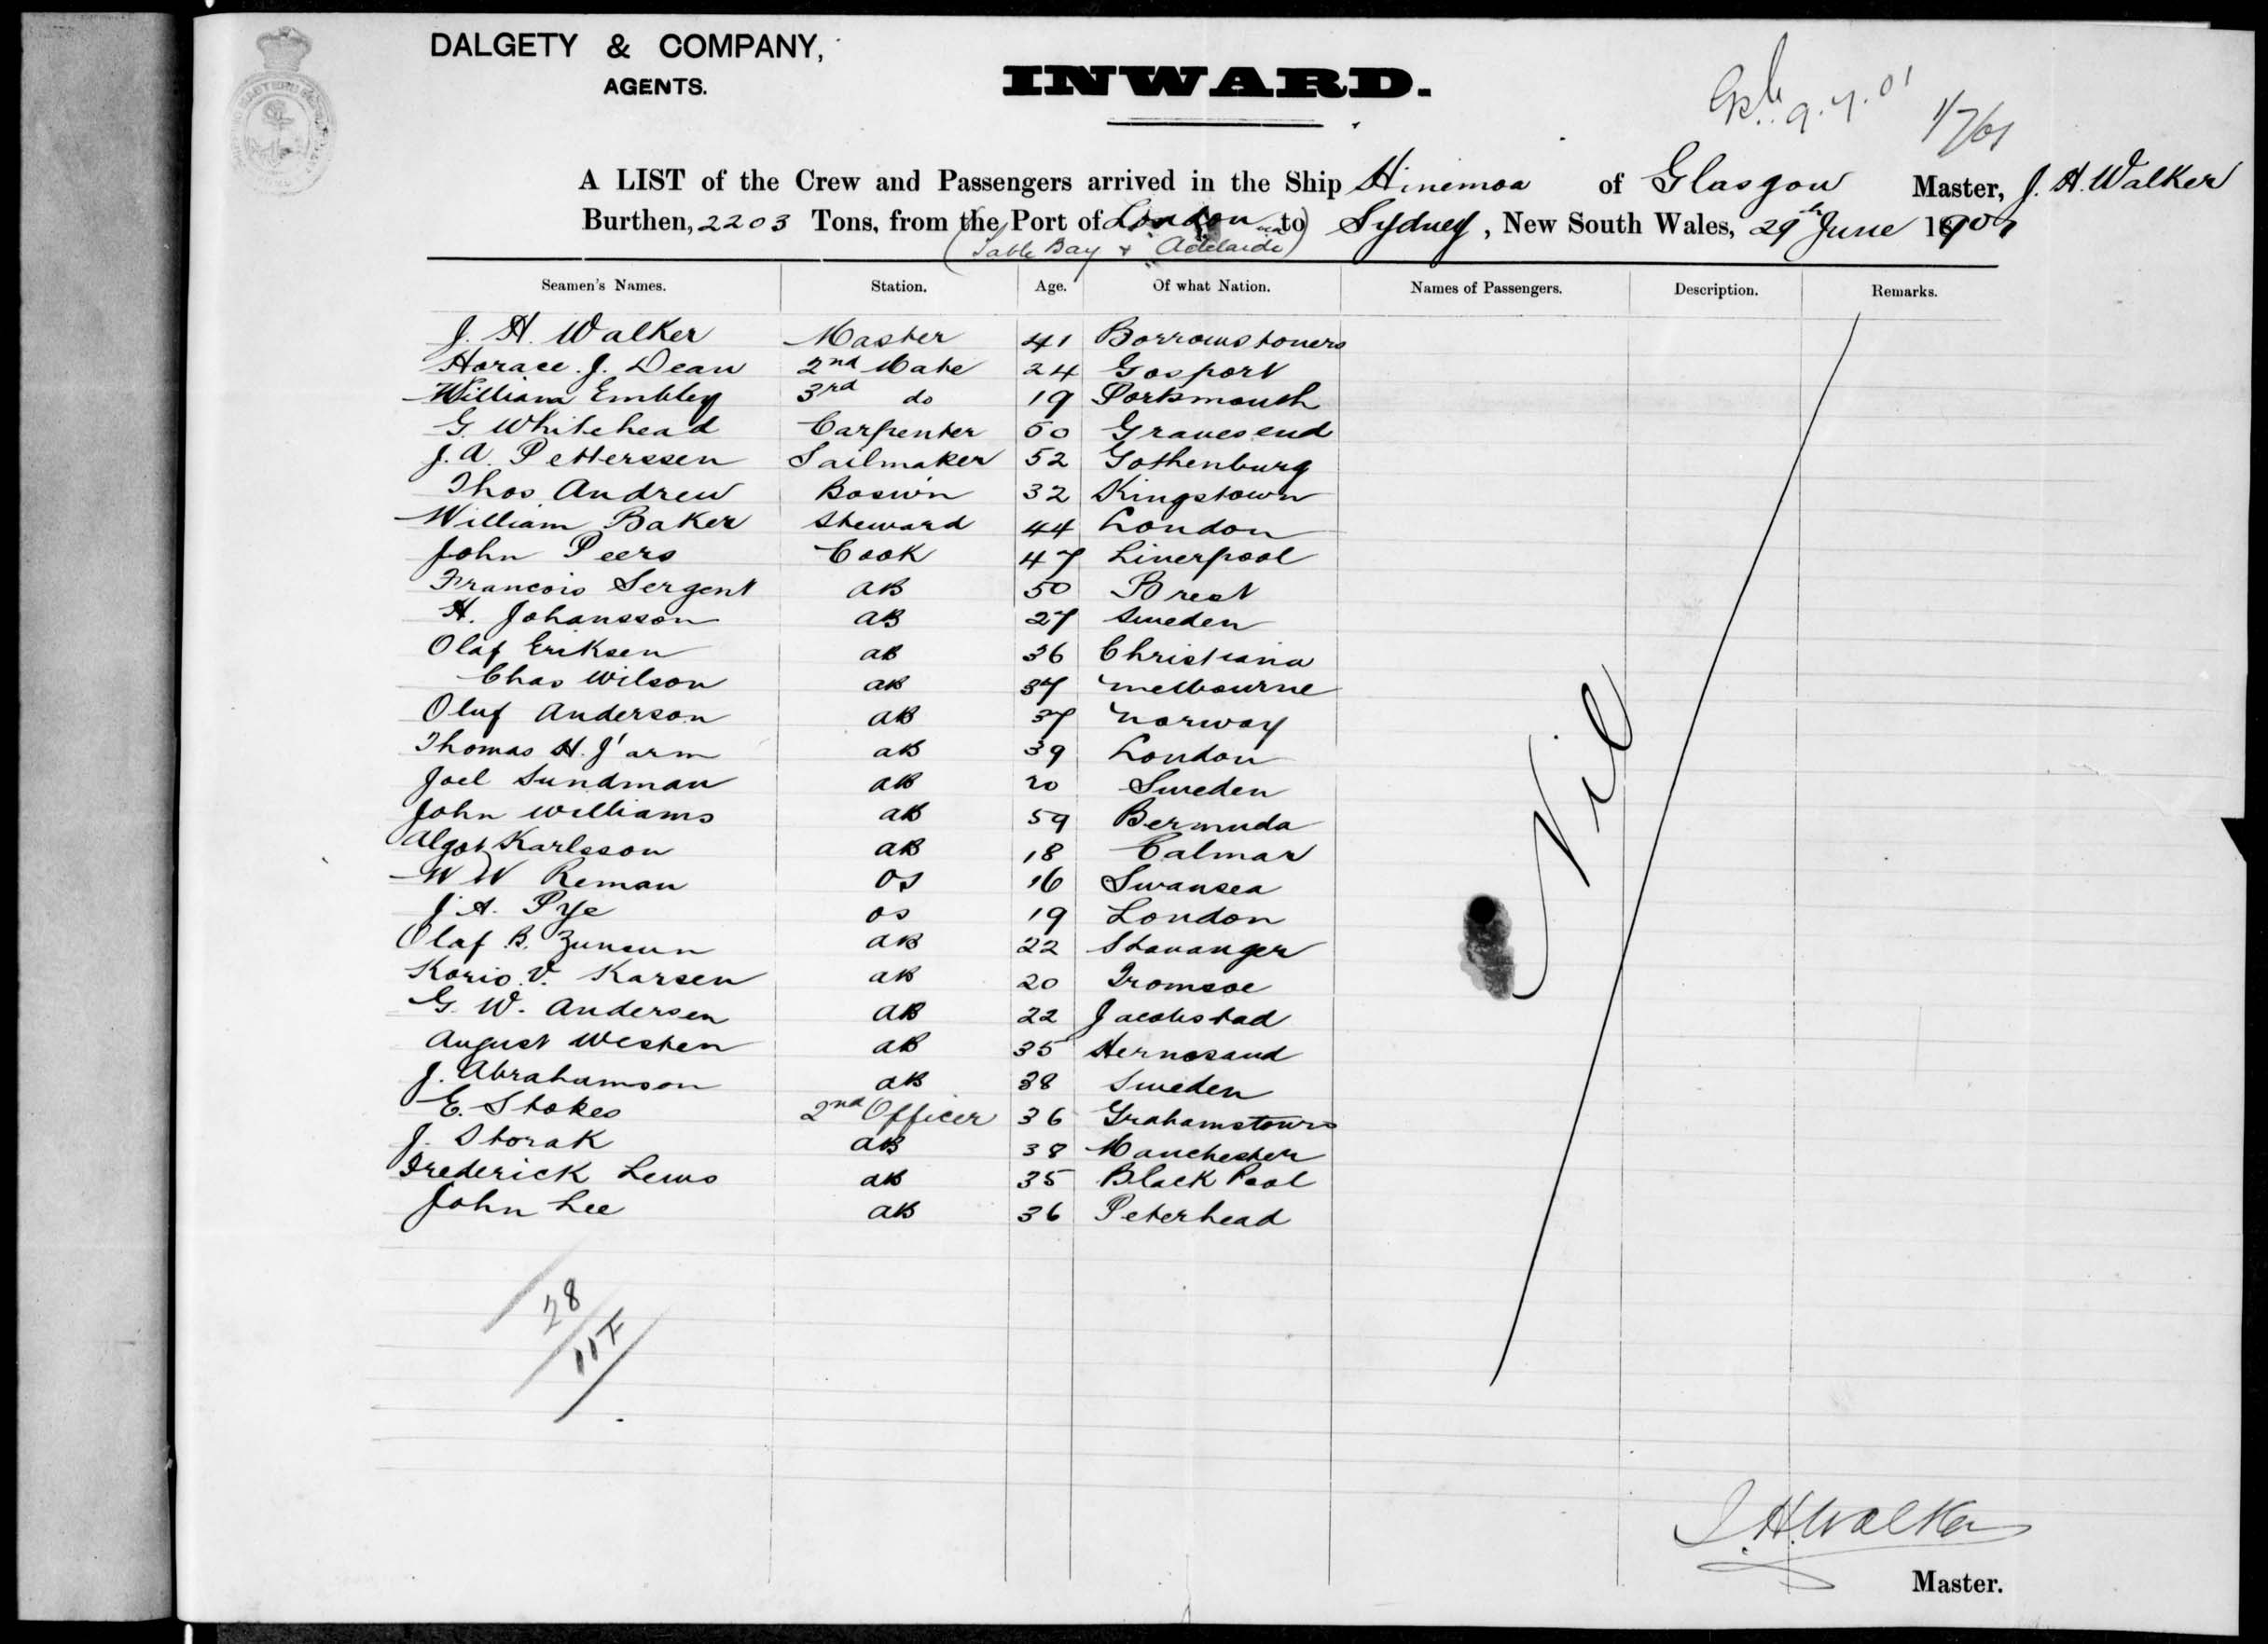 DALGETY & COMPANY,
AGENTS.
INWARD.
9.7.01
1/7/01
A LIST of the Crew and Passengers arrived in the Ship Hinemoa of Glasgow Master, J. H. Walker
Burthen, 2203 Tons, from the Port of London to Sydney, New South Wales, 29th June 1901
(Table Bay & Adelaide)
Seamen's Names. Station. Age. Of what Nation. Names of Passengers. Description. Remarks.
J. H. Walker Master 41 Borrowstoness
Horace. J. Dean 2nd Mate 24 Gosport
William Embley 3rd do 19 Portsmouth
G. Whitehead Carpenter 50 Gravesend
J. A. Petterssen Sailmaker 52 Gothenburg
Thos Andrew Bosw'n 32 Kingstown
William Baker Steward 44 London
John Peers Cook 47 Liverpool
Francois Sergent AB 50 Brest
H. Johansson AB 27 Sweden
Olaf Eriksen AB 36 Christiania
Chas Wilson AB 37 Melbourne
Oluf Anderson AB 37 Norway
Thomas H. J'arm AB 39 London
Joel Sundman AB 20 Sweden
John Williams AB 59 Bermuda
Algot Karlsson AB 18 Calmar
W W Reman OS 16 Swansea
J. A. Pye OS 19 London
Olaf B. AB 22 Stavanger
Koris. V. Karsen AB 20 Tromsoe
G. W. Andersen AB 22 Jacobstad
August Westen AB 35 Hernosand
J. Abrahamson AB 38 Sweden
E. Stokes 2nd Officer 36 Grahamstown
J. Storak AB 38 Manchester
Frederick Lewis AB 35 Black Pool
John Lee AB 36 Peterhead
Nil
28
11F
J. H. Walker
Master.